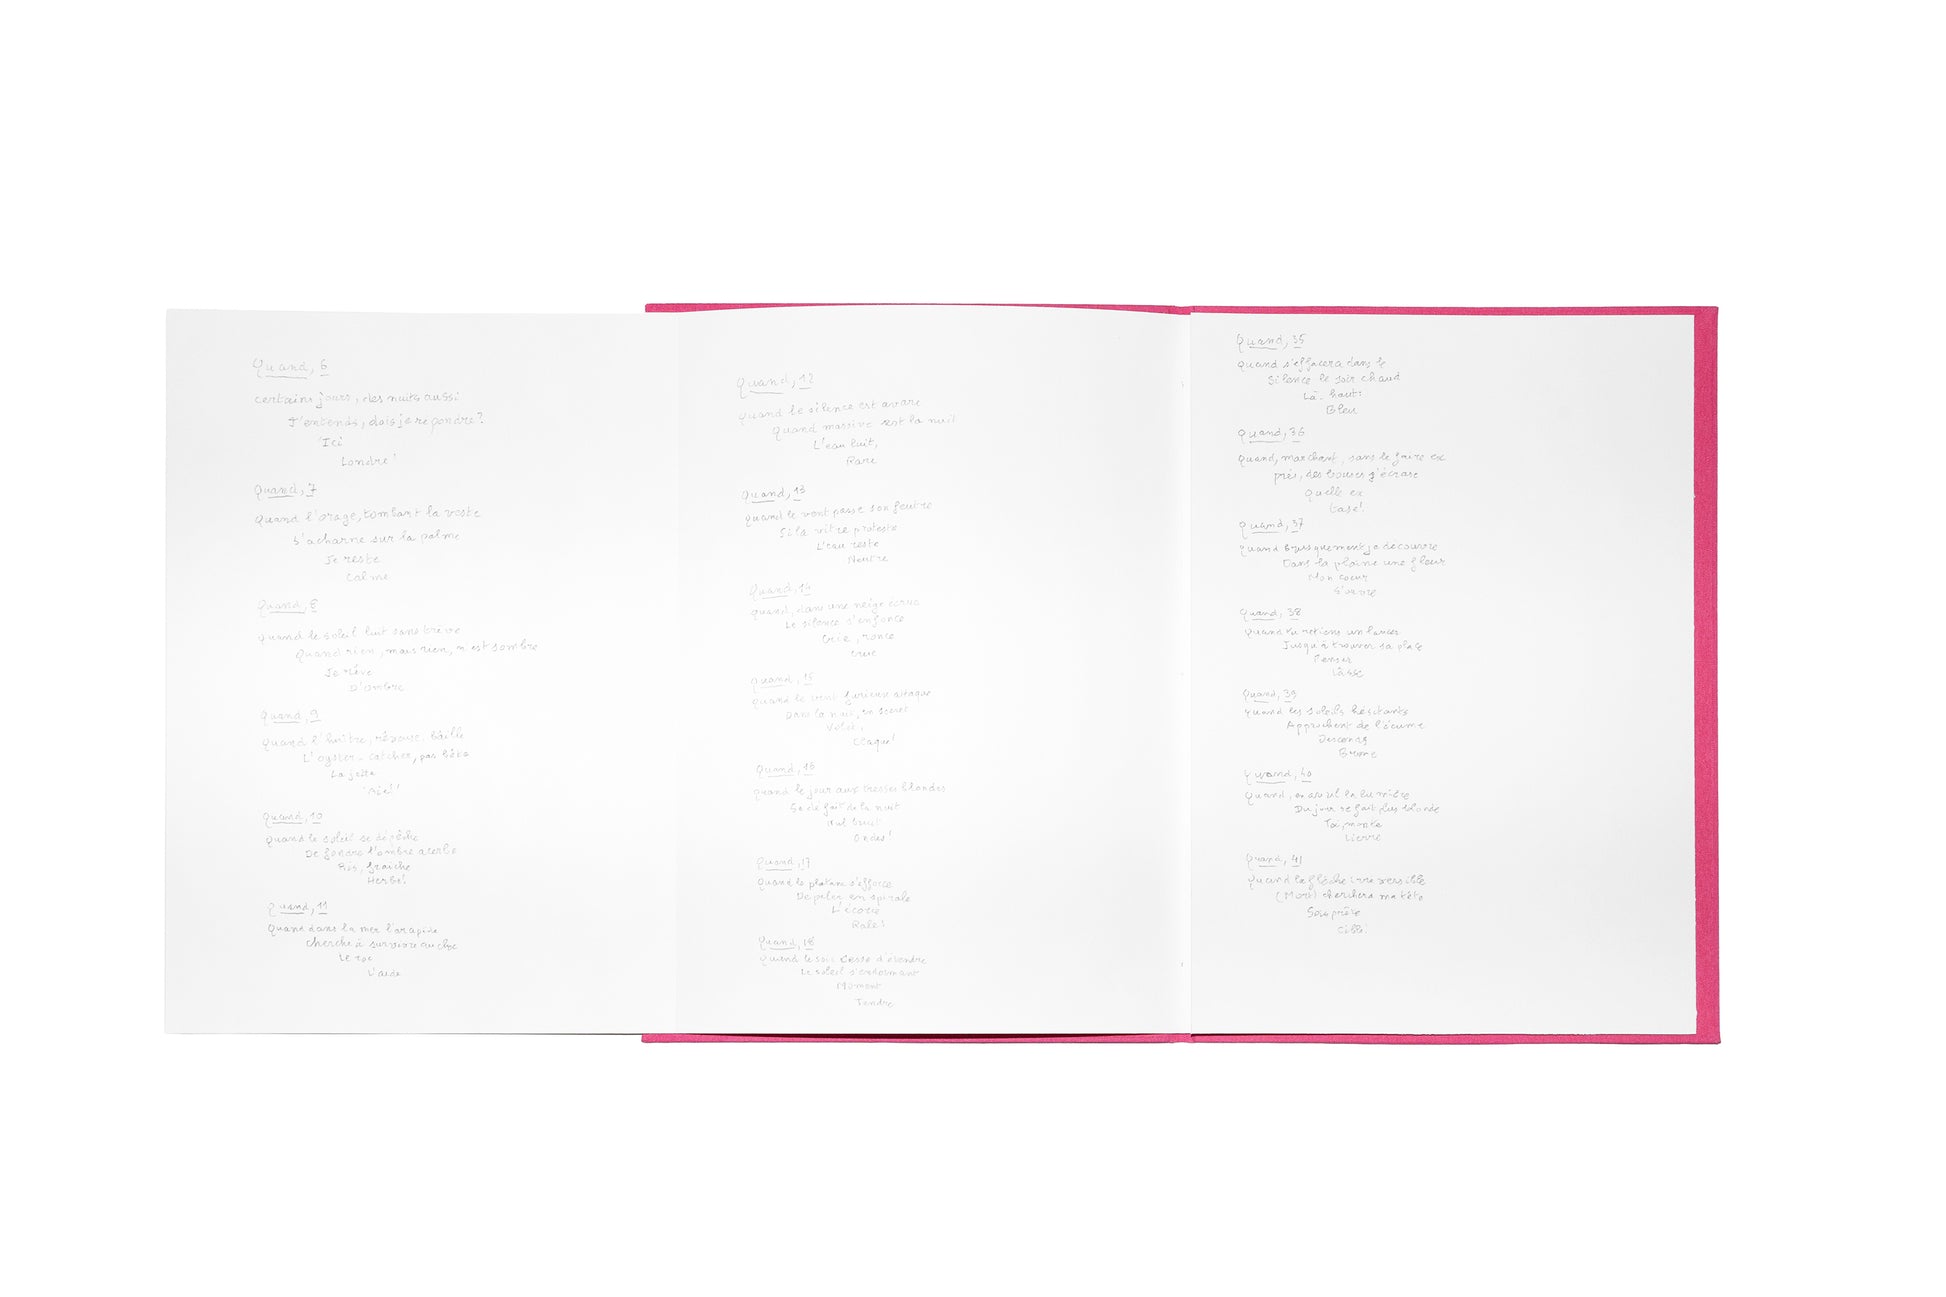 Quand, 6
certains jours, des nuits aussi
J'entends, dois je répondre?
'Ici
Londre'
Quand, 7
Quand l'orage, tombant la veste
S'acharne sur la palme
Je reste
Calme
Quand, 8
Quand le soleil luit sans trève
Quand rien, mais rien, n'est sombre
Je rêve
D'ombre
Quand, 9
Quand l'huître, rêveuse, bâille
L'oyster-catcher, pas bête
La jette
Quand, 10
Quand le soleil se dépêche
De fondre l'ombre acerbe
Ris, fraîche
Herbe!
Quand, 11
Quand dans la mer l'arapède
cherche à survivre au choc
Le roc
L'aide
Quand, 12
Quand le silence est avare
Quand massive est la nuit
L'eau luit,
Rare
Quand, 13
Quand le vent passe son feutre
Si la vitre proteste
L'eau reste
Neutre
Quand, 14
Quand, dans une neige écrue
Le silence s'enfonce
Crie, ronce
crue
Quand, 15
Quand le vent furieux attaque
Dans la nuit, en secret
Volet,
Claque!
Quand, 16
Quand le jour aux tresses blondes
Se défait de la nuit
Nul bruit
Ondes!
Quand, 17
Quand le platane s'efforce
De peler en spirale
L'écorce
Rale!
Quand, 18
Quand le soir cesse d'étendre
Le soleil s'endormant
Moment
Tendre
Quand, 35
Quand s'effacera dans le
Silence le soir chaud
Là-haut:
Bleu
Quand, 36
Quand, marchant, sans le faire ex
près, des bouses j'écrase
Quelle ex
tase!
Quand, 37
Quand brusquement je découvre
Dans la plaine une fleur
Mon coeur
S'ouvre
Quand, 38
Quand tu retiens un
Jusqu'à trouver sa place
Penser
Lasse
Quand, 39
Quand les soleils hésitants
Approchent de l'écume
Brume
Quand, 40
Quand, en avril la lumière
Du jour se fait plus blonde
Toi, monte
Lierre
Quand, 41
Quand la flèche irréversible
(Mort) cherchera ma tête
Sois prête
Cible!